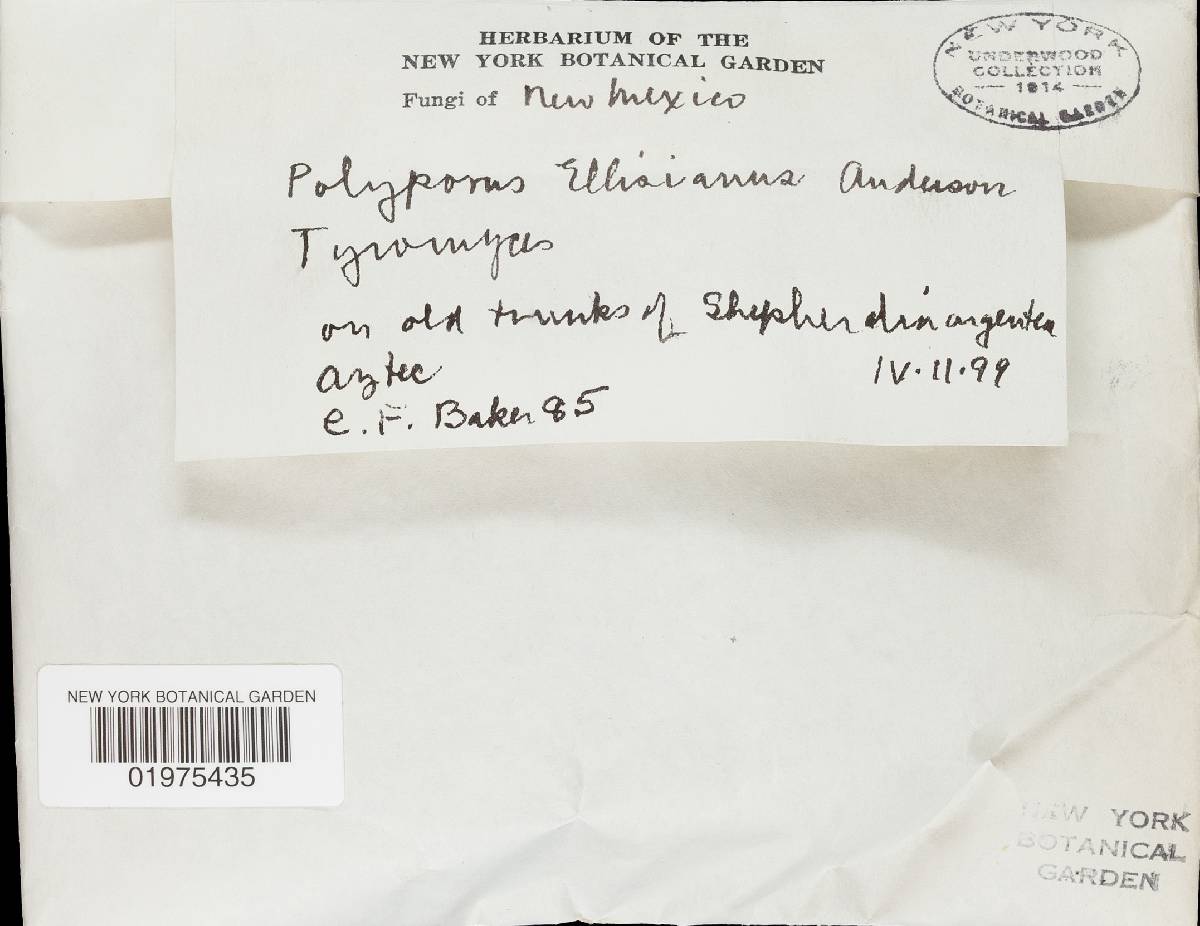 HERBARIUM OF THE
NEW YORK BOTANICAL GARDEN
Fungi of New Mexico
NEW YORK
UNDERWOOD
COLLECTION
1914
BOTANICAL GARDEN
Polyporus Ellisianus Anderson
Tyromyces
on old trunks of Shepherdia argentea
Aztec IV.11.99
C. F. Baker 85
NEW YORK BOTANICAL GARDEN
01975435
NEW YORK
BOTANICAL
GARDEN